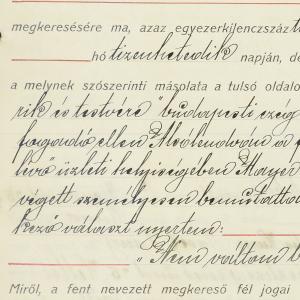 megkeresésére ma, azaz egyezerkilenczszáz
hó tizenhetedik napján, de
a melynek szószerinti másolata a tulsó oldalo
rik és testvére" budapesti czég
fogadó ellen Alsólendván a f
lévő üzleti helyiségében Mayer
végett személyesen bemutattam
kező választ nyertem:
"Nem váltom b
Miről, a fent nevezett megkereső fél jogai